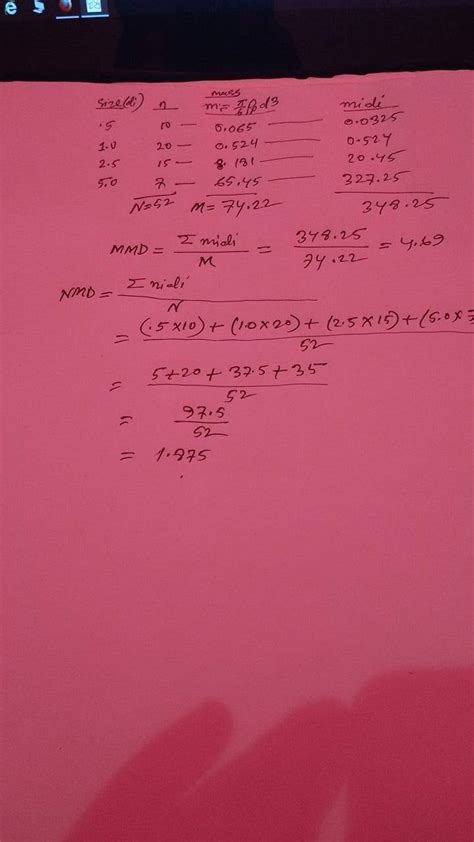 mass
size(di) n m = π/6 ρp d3 midi
.5 10 — 0.065 — 0.0325
1.0 20 — 0.524 — 0.524
2.5 15 — 8.181 — 20.45
5.0 7 — 65.45 — 327.25
N=52 M = 74.22 348.25
MMD = Σ midi / M = 348.25 / 74.22 = 4.69
NMD = Σ nidi / N
= (.5×10) + (1.0×20) + (2.5×15) + (5.0× / 52
= 5+20+37.5+35 / 52
= 97.5 / 52
= 1.875